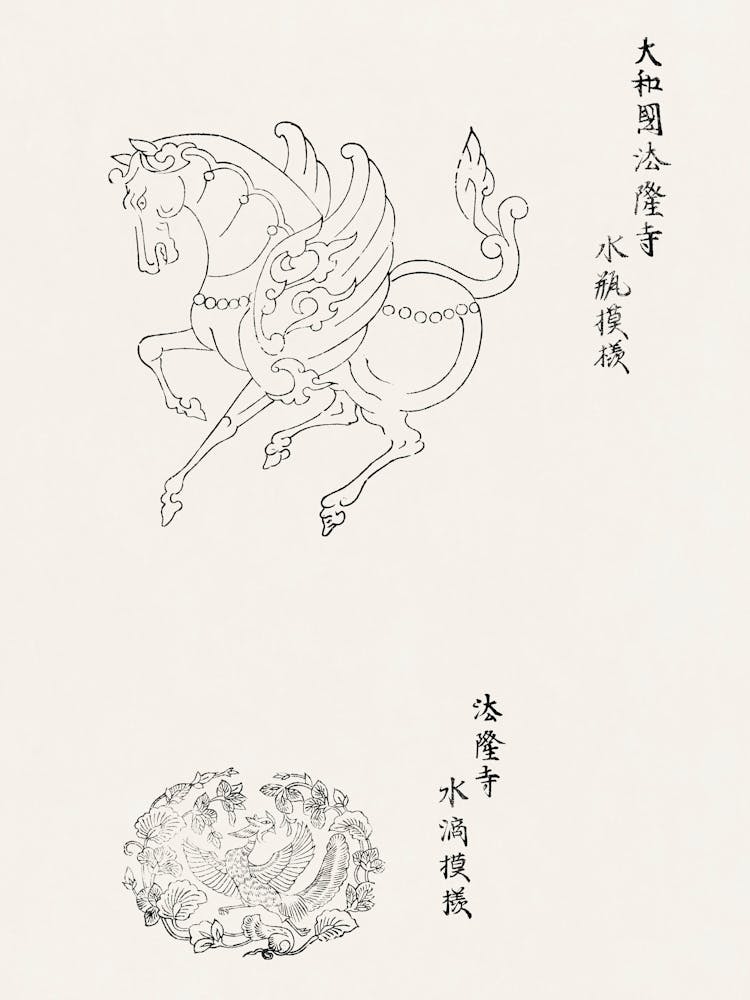 大和國法隆寺
水瓶摸様
法隆寺
水滴摸様